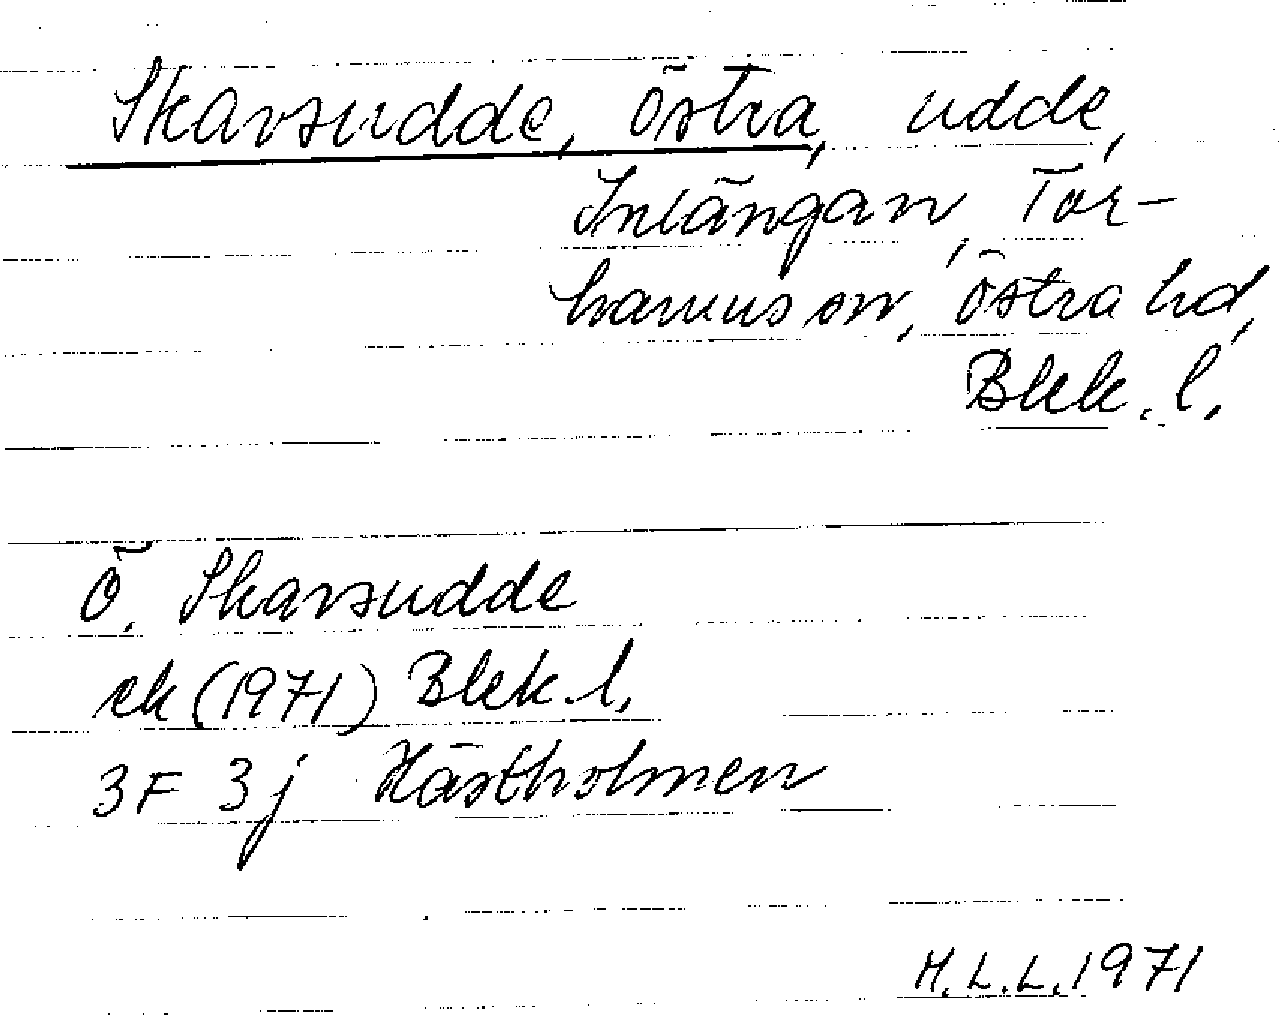 Skavsudde, östra, udde,
Inlängan, Tor-
hamns sn, Östra hd,
Blek. l.
Ö. Skavsudde
ek (1971) Blek. l.
3F 3j Hästholmen
M.L.L. 1971